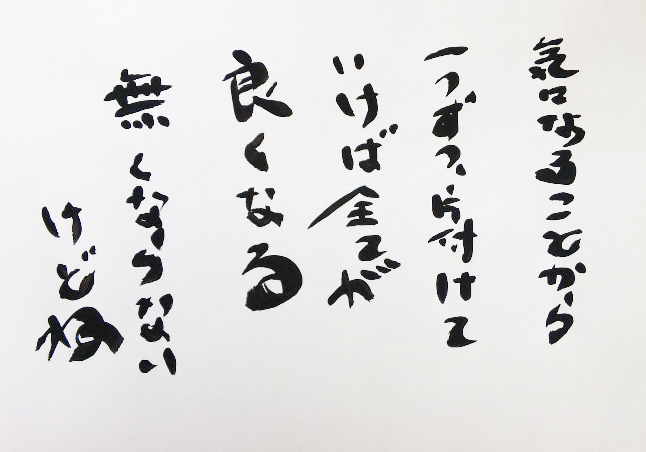 気になることから
一つずつ、片付けて
いけば全てが
良くなる
無くならない
けどね